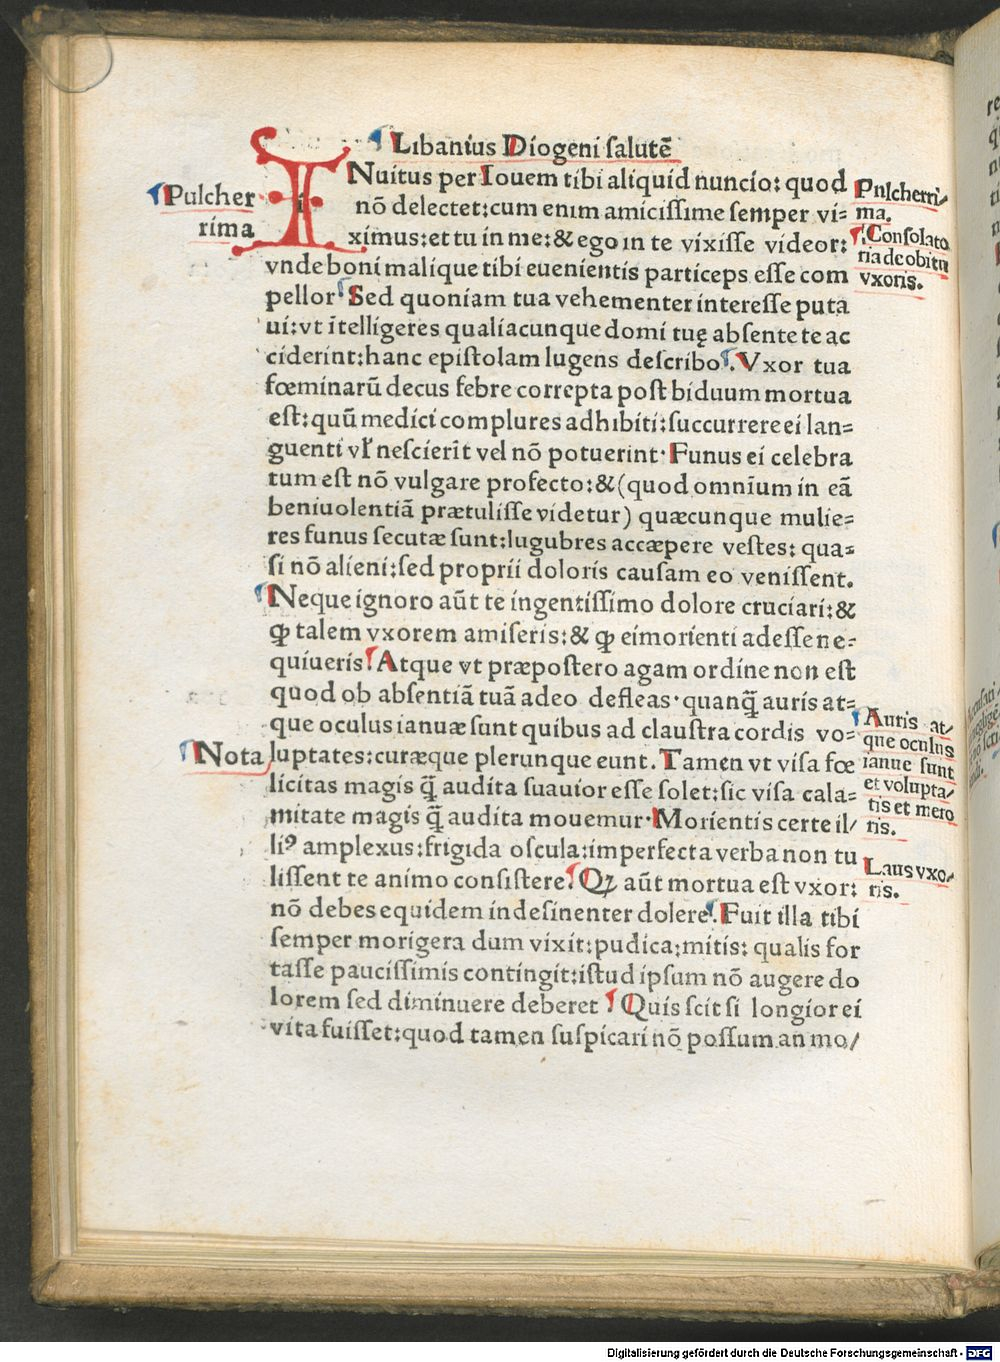 Libanius Diogeni salutē
INuitus per Iouem tibi aliquid nuncio: quod
nō delectet: cum enim amicissime semper vi=
ximus: et tu in me: & ego in te vixisse videor:
vnde boni malique tibi euenientis particeps esse com
pellor. Sed quoniam tua vehementer interesse puta
ui: vt ītelligeres qualiacunque domi tuę absente te ac
ciderint: hanc epistolam lugens describo. Vxor tua
fœminarū decus febre correpta post biduum mortua
est: quū medici complures adhibiti: succurrere ei lan=
guenti vł nescierīt vel nō potuerint. Funus ei celebra
tum est nō vulgare profecto: & (quod omnīum in eā
beniuolentiā prætulisse videtur) quæcunque mulie=
res funus secutæ sunt: lugubres accæpere vestes: qua=
si nō alieni: sed proprii doloris causam eo venissent.
Neque ignoro aūt te ingentissimo dolore cruciari: &
ꝙ talem vxorem amiseris: & ꝙ ei morienti adesse ne=
quiueris. Atque vt præpostero agam ordine non est
quod ob absentiā tuā adeo defleas. quanq̄ auris at=
que oculus ianuæ sunt quibus ad claustra cordis vo=
luptates: curæque plerunque eunt. Tamen vt visa fœ
licitas magis q̄ audita suauior esse solet: sic visa cala=
mitate magis q̄ audita mouemur. Morientis certe il/
liꝰ amplexus: frigida oscula: imperfecta verba non tu
lissent te animo consistere. Qꝫ aūt mortua est vxor:
nō debes equidem indesinenter dolere. Fuit illa tibi
semper morigera dum vixit: pudica: mitis: qualis for
tasse paucissimis contingit: istud ipsum nō augere do
lorem sed diminuere deberet Quis scit si longior ei
vita fuisset: quod tamen suspicari nō possum an mo/
Pulcher
rima
Nota
Pulcherri/
ma.
Consolato
ria de obitu
vxoris.
Auris at/
que oculus
ianue sunt
et volupta/
tis et mero
ris.
Laus vxo/
ris.
Digitalisierung gefördert durch die Deutsche Forschungsgemeinschaft - DFG